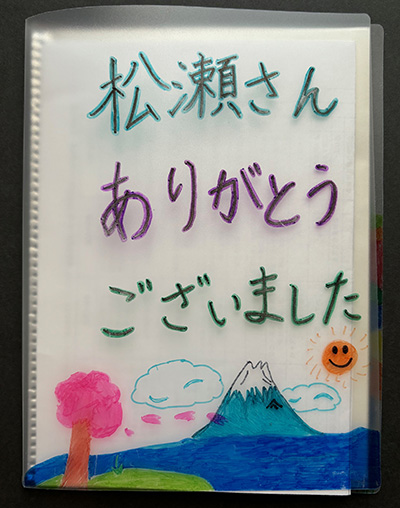 松瀬さん
ありがとう
ございました